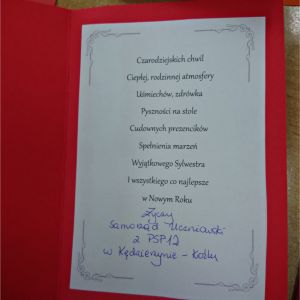 Czarodziejskich chwil
Ciepłej, rodzinnej atmosfery
Uśmiechów, zdrówka
Pyszności na stole
Cudownych prezencików
Spełnienia marzeń
Wyjątkowego Sylwestra
I wszystkiego co najlepsze
w Nowym Roku
życzy
Samorząd Uczniowski
z PSP12
w Kędzierzynie - Koźlu